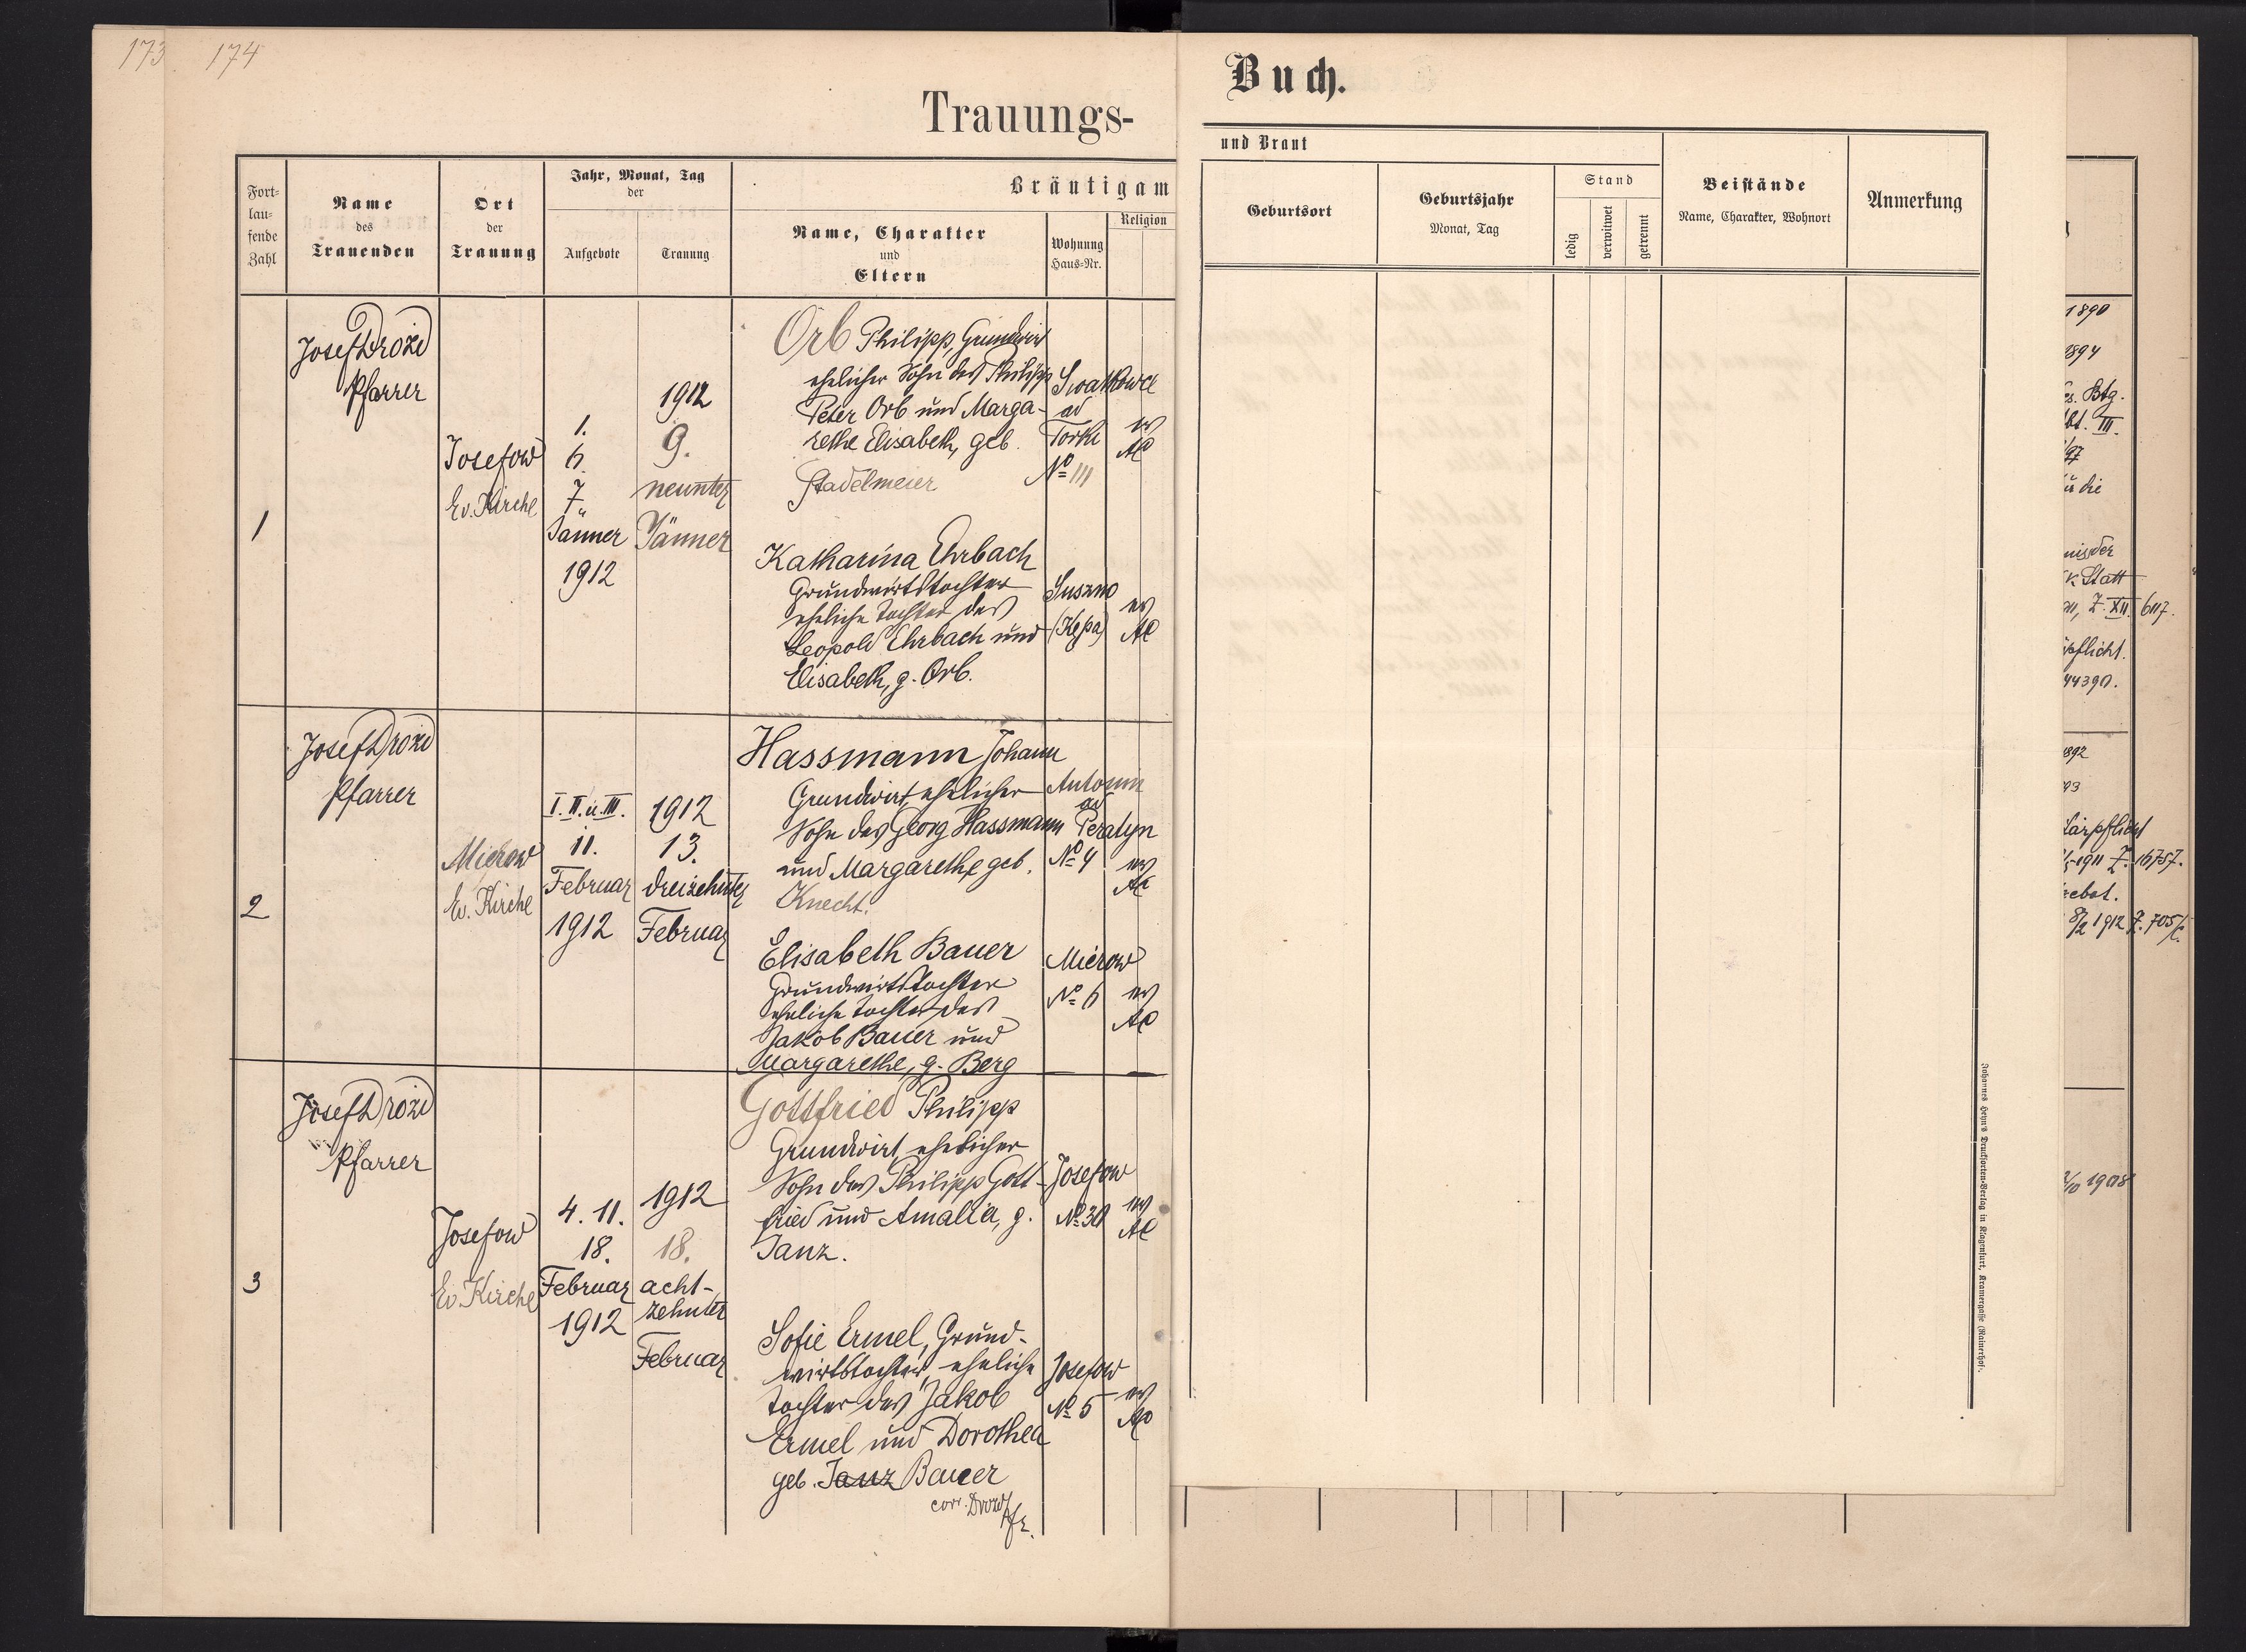 173
174
Trauungs-
Buch.
Fort-
lau-
fende
Zahl
Name
des
Trauenden
Ort
der
Trauung
Jahr, Monat, Tag
der
Aufgebote
Trauung
Bräutigam
Name, Charakter
und
Eltern
Wohnung
Haus-Nr.
Religion
und Braut
Geburtsort
Geburtsjahr
Monat, Tag
Stand
ledig
verwitwet
getrennt
Beistände
Name, Charakter, Wohnort
Anmerkung
1
Josef Drozd
Pfarrer
Josefow
Ev. Kirche
1.
6.
7.
Jänner
1912
1912
9.
neunter
Jänner
Orb Philipp, Grundwirt
ehelicher Sohn des Philipp
Peter Orb und Marga-
rethe Elisabeth, geb.
Stadelmeier
ad
Torki
No III
ev
AC
Katharina Ehrbach
Grundwirtstochter
eheliche Tochter des
Leopold Ehrbach und
Elisabeth, g. Orb.
Suszno
(Kępa)
ev
AC
2
Josef Drozd
Pfarrer
Mierow
Ev. Kirche
I. II. u. III.
11.
Februar
1912
1912
13.
dreizehnter
Februar
Hassmann Johann
Grundwirt, ehelicher
Sohn des Georg Hassmann
und Margarethe geb.
Knecht.
Antonin
ad
Peratyn
No 4
ev
AC
Elisabeth Bauer
Grundwirtstochter
eheliche Tochter des
Jakob Bauer und
Margarethe, g. Berg
Mierow
No 6
ev
AC
3
Josef Drozd
Pfarrer
Josefow
Ev. Kirche
4. 11.
18.
Februar
1912
1912
18.
acht-
zehnter
Februar
Gottfried Philipp
Grundwirt, ehelicher
Sohn des Philipp Gott-
fried und Amalia, g.
Janz.
Josefow
No 30
ev
AC
Sofie Ermel, Grund-
wirtstochter, eheliche
Tochter des Jakob
Ermel und Dorothea
geb. Janz Bauer
corr. Drozd
Pfr.
Josefow
No 5
ev
AC
Johannes Heyn's Drucksorten-Verlag in Klagenfurt, Kramergasse (Rainerhof).
1890
1894
es. Btg.
bt. III.
97
ür die
nis der
k. Statt
Z. XII 617.
pflicht.
44390.
1892
93
tärpflicht
1911 Z. 16757.
gebot.
8/2 1912 Z. 705/C.
1908